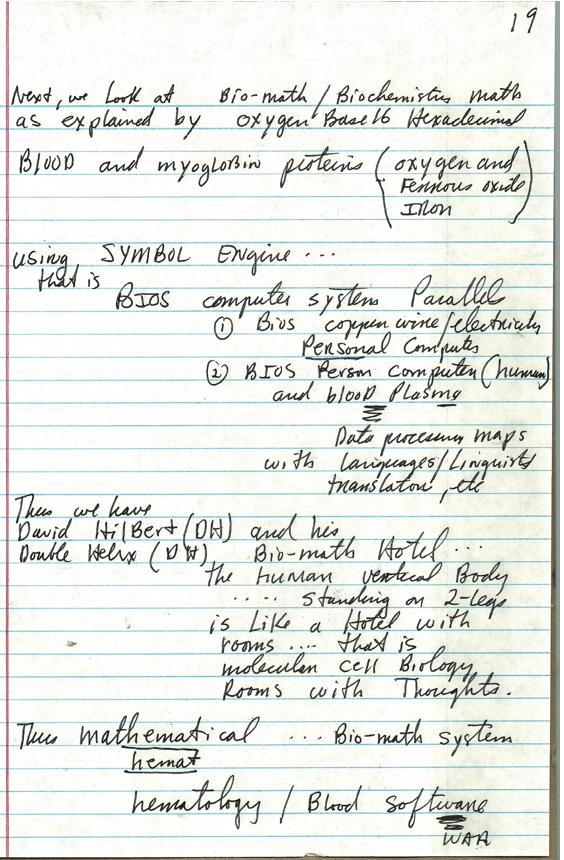 19
Next, we Look at Bio-math / Biochemistry math
as explained by oxygen Base 16 Hexadecimal
BLOOD and myogloBin proteins (oxygen and
Ferrous oxide
IRon)
using, SYMBOL Engine ...
that is
BIOS computer system Parallels
① Bios copper wire/electricity
Personal Computer
② BIOS Person computer (human)
and blooD Plasma
Data processing maps
with languages/Linguists
translator, etc
Thus we have
David HilBert (DH) and his
Double Helix (DH) Bio-math Hotel ...
the human vertical Body
..... standing on 2-legs
is Like a Hotel with
rooms .... that is
molecular cell Biology
Rooms with Thoughts.
Thus mathematical ... Bio-math system
hemat
hematology / Blood software
WAR